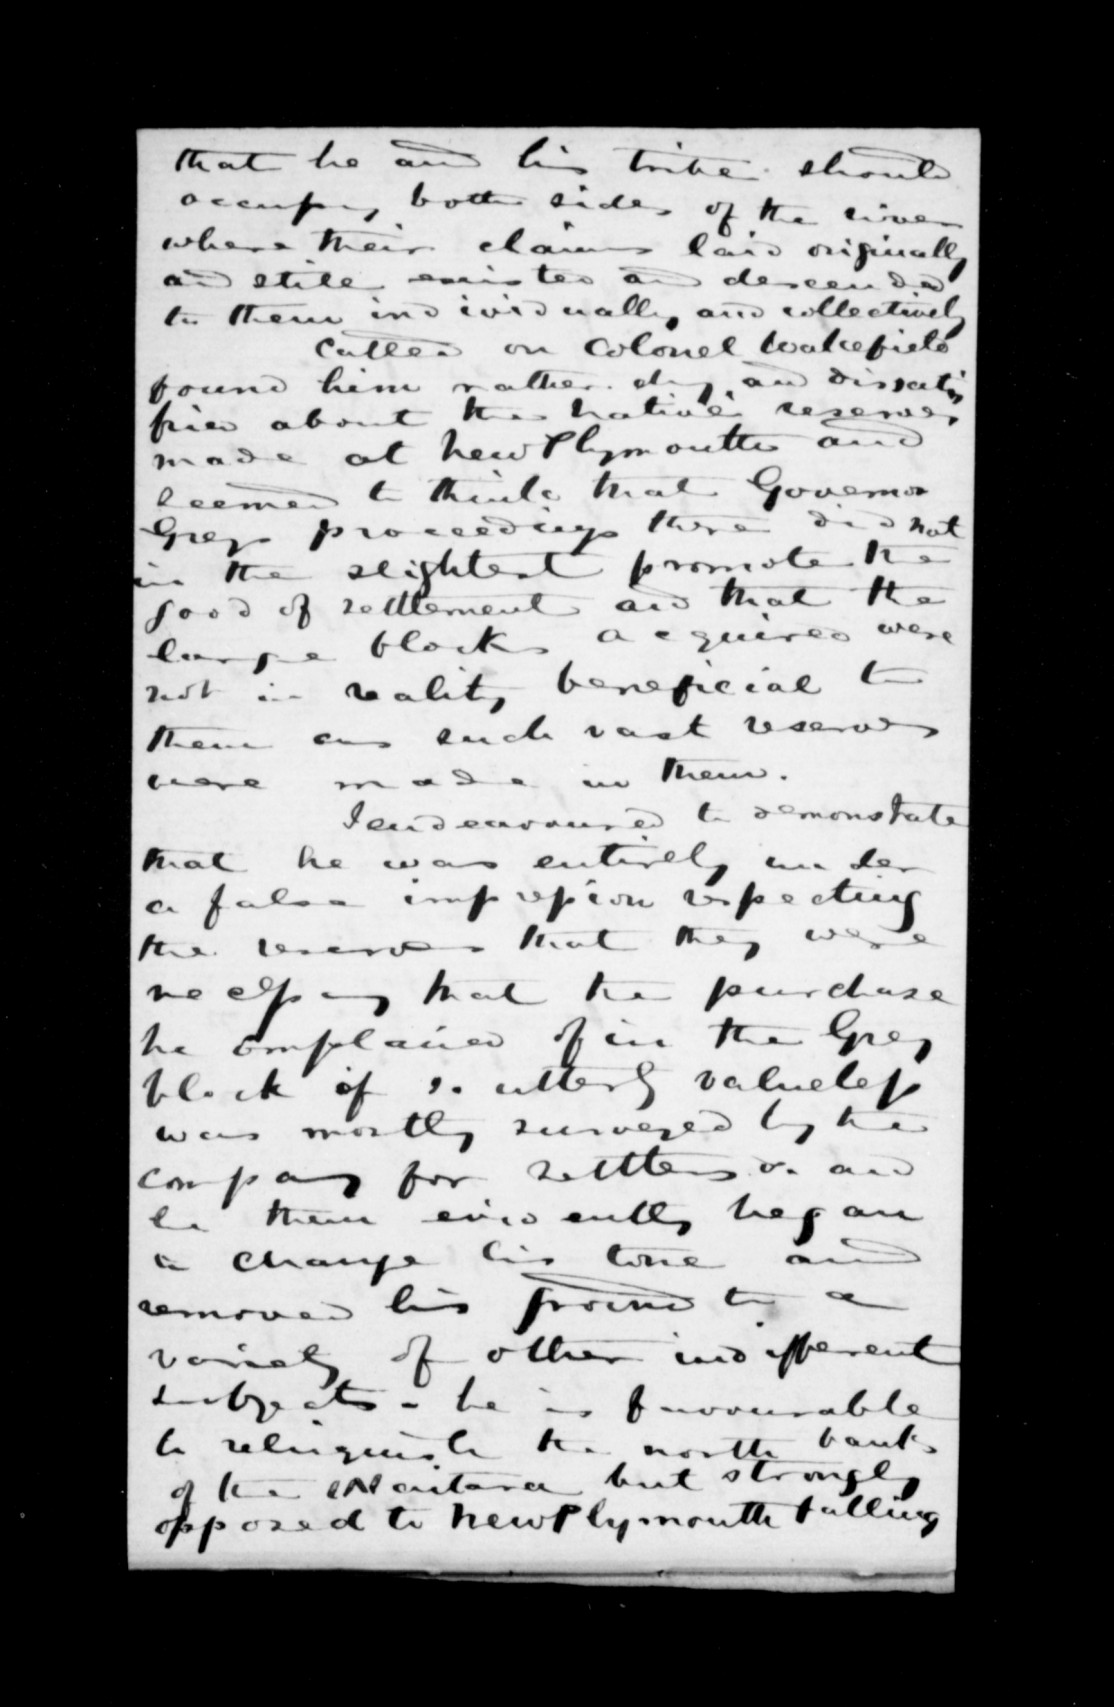 that he and his tribe should
occupy both sides of the river
where their claims laid originally
and still existed and descended
to them individually and collectively
Called on Colonel Wakefield
found him rather dry and dissatis
fied about the native reserves
made at New Plymouth and
seemed to think that Governor
Greys proceedings there did not
in the slightest promote the
good of settlement and that the
large blocks acquired were
not in reality beneficial to
them as such vast reserves
were made in them.
I endeavoured to demonstate
that he was entirely under
a false impression respecting
the reserves that they were
necessary that the purchase
he complained of in the Grey
block of so utterly valueless
was mostly surveyed by the
company for settlers &c and
he then evidently began
to change his tone and
removed his ground to a
variety of other indifferent
subjects - he is favourable
to relinquish the north bank
of the Waitara but strongly
opposed to New Plymouth falling